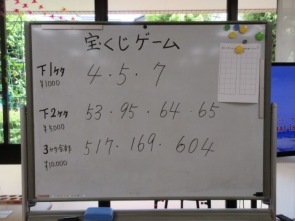 宝くじゲーム
下1ケタ 4・5・7
¥1000
下2ケタ 53・95・64・65
¥5,000
3ケタ全部 517・169・604
¥10,000